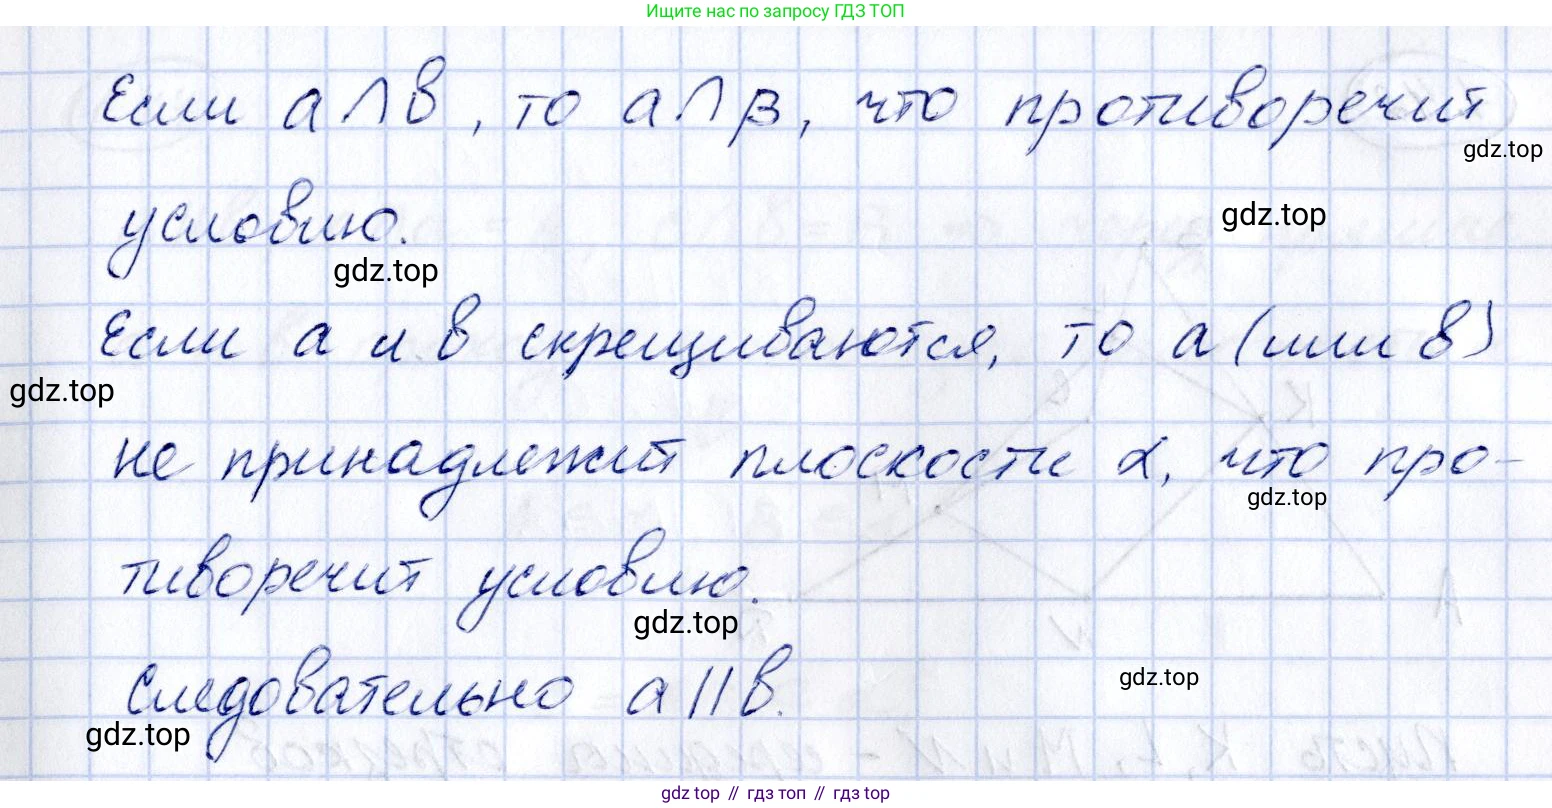 Ищите нас по запросу ГДЗ ТОП
Если a∩b, то a∩β, что противоречит
gdz.top
условию.
gdz.top
gdz.top
Если a и b скрещиваются, то a (или b)
gdz.top
не принадлежит плоскости α, что про-
gdz.top
тиворечит условию.
gdz.top
Следовательно a||b.
gdz.top
gdz.top
gdz top // гдз топ // гдз top